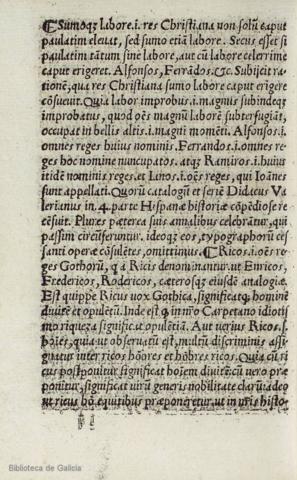 ¶Sumoqꝫ labore .i. res Christiana non solū caput
paulatim eleuat, sed sumo etiā labore. Secus esset si
paulatim tātum sine labore, aut cū labore celerrime
caput erigeret. Alfonsos, Ferrādos. &c. Subijcit ra-
tionē, qua res Christiana sumo labore caput erigere
cōsueuit. Quia labor improbus .i. magnus subindeqꝫ
improbatus, quod oēs magnū laborē subterfugiāt,
occupat in bellis altis .i. magni momēti. Alfonsos .i.
omnes reges huius nominis. Ferrandos .i. omnes re-
ges hoc nomine nuncupatos. atqꝫ Ramiros .i. huius
itidē nominis reges. et Ianos .i. oēs reges, qui Ioānes
sunt appellati. Quorū catalogū et seriē Didacus Va-
lerianus in .4. parte Hispanæ historiæ cōpēdiose re-
cēsuit. Plures pæterea suis annalibus celebrātur, qui
passim circūferuntur. ideoqꝫ eos, typographorū ces-
santi operæ cōsulētes, omittimus. ¶Ricos .i. oēs re-
ges Gothorū, qui a Ricis denominantur. ut Enricos,
Fredericos, Rodericos, cæterosqꝫ eiusdē analogiæ.
Est quippe Ricus vox Gothica, significatqꝫ hominē
diuitē et opulētū. Inde est qꝫ in nr̄o Carpetano idiotis-
mo riqueza significat opulētiā. Aut verius Ricos .s.
hoīes, quia ut obseruatū est, multū discriminis assi-
gnatur inter ricos hōbres et hōbres ricos. Quia cū si
cus postponitur significat hoīem diuitē: cū vero præ
ponitur, significat virū generis nobilitate clarū: adeo
ut ricus hō equitibus præponeretur. ut in nr̄is histo-
Biblioteca de Galicia